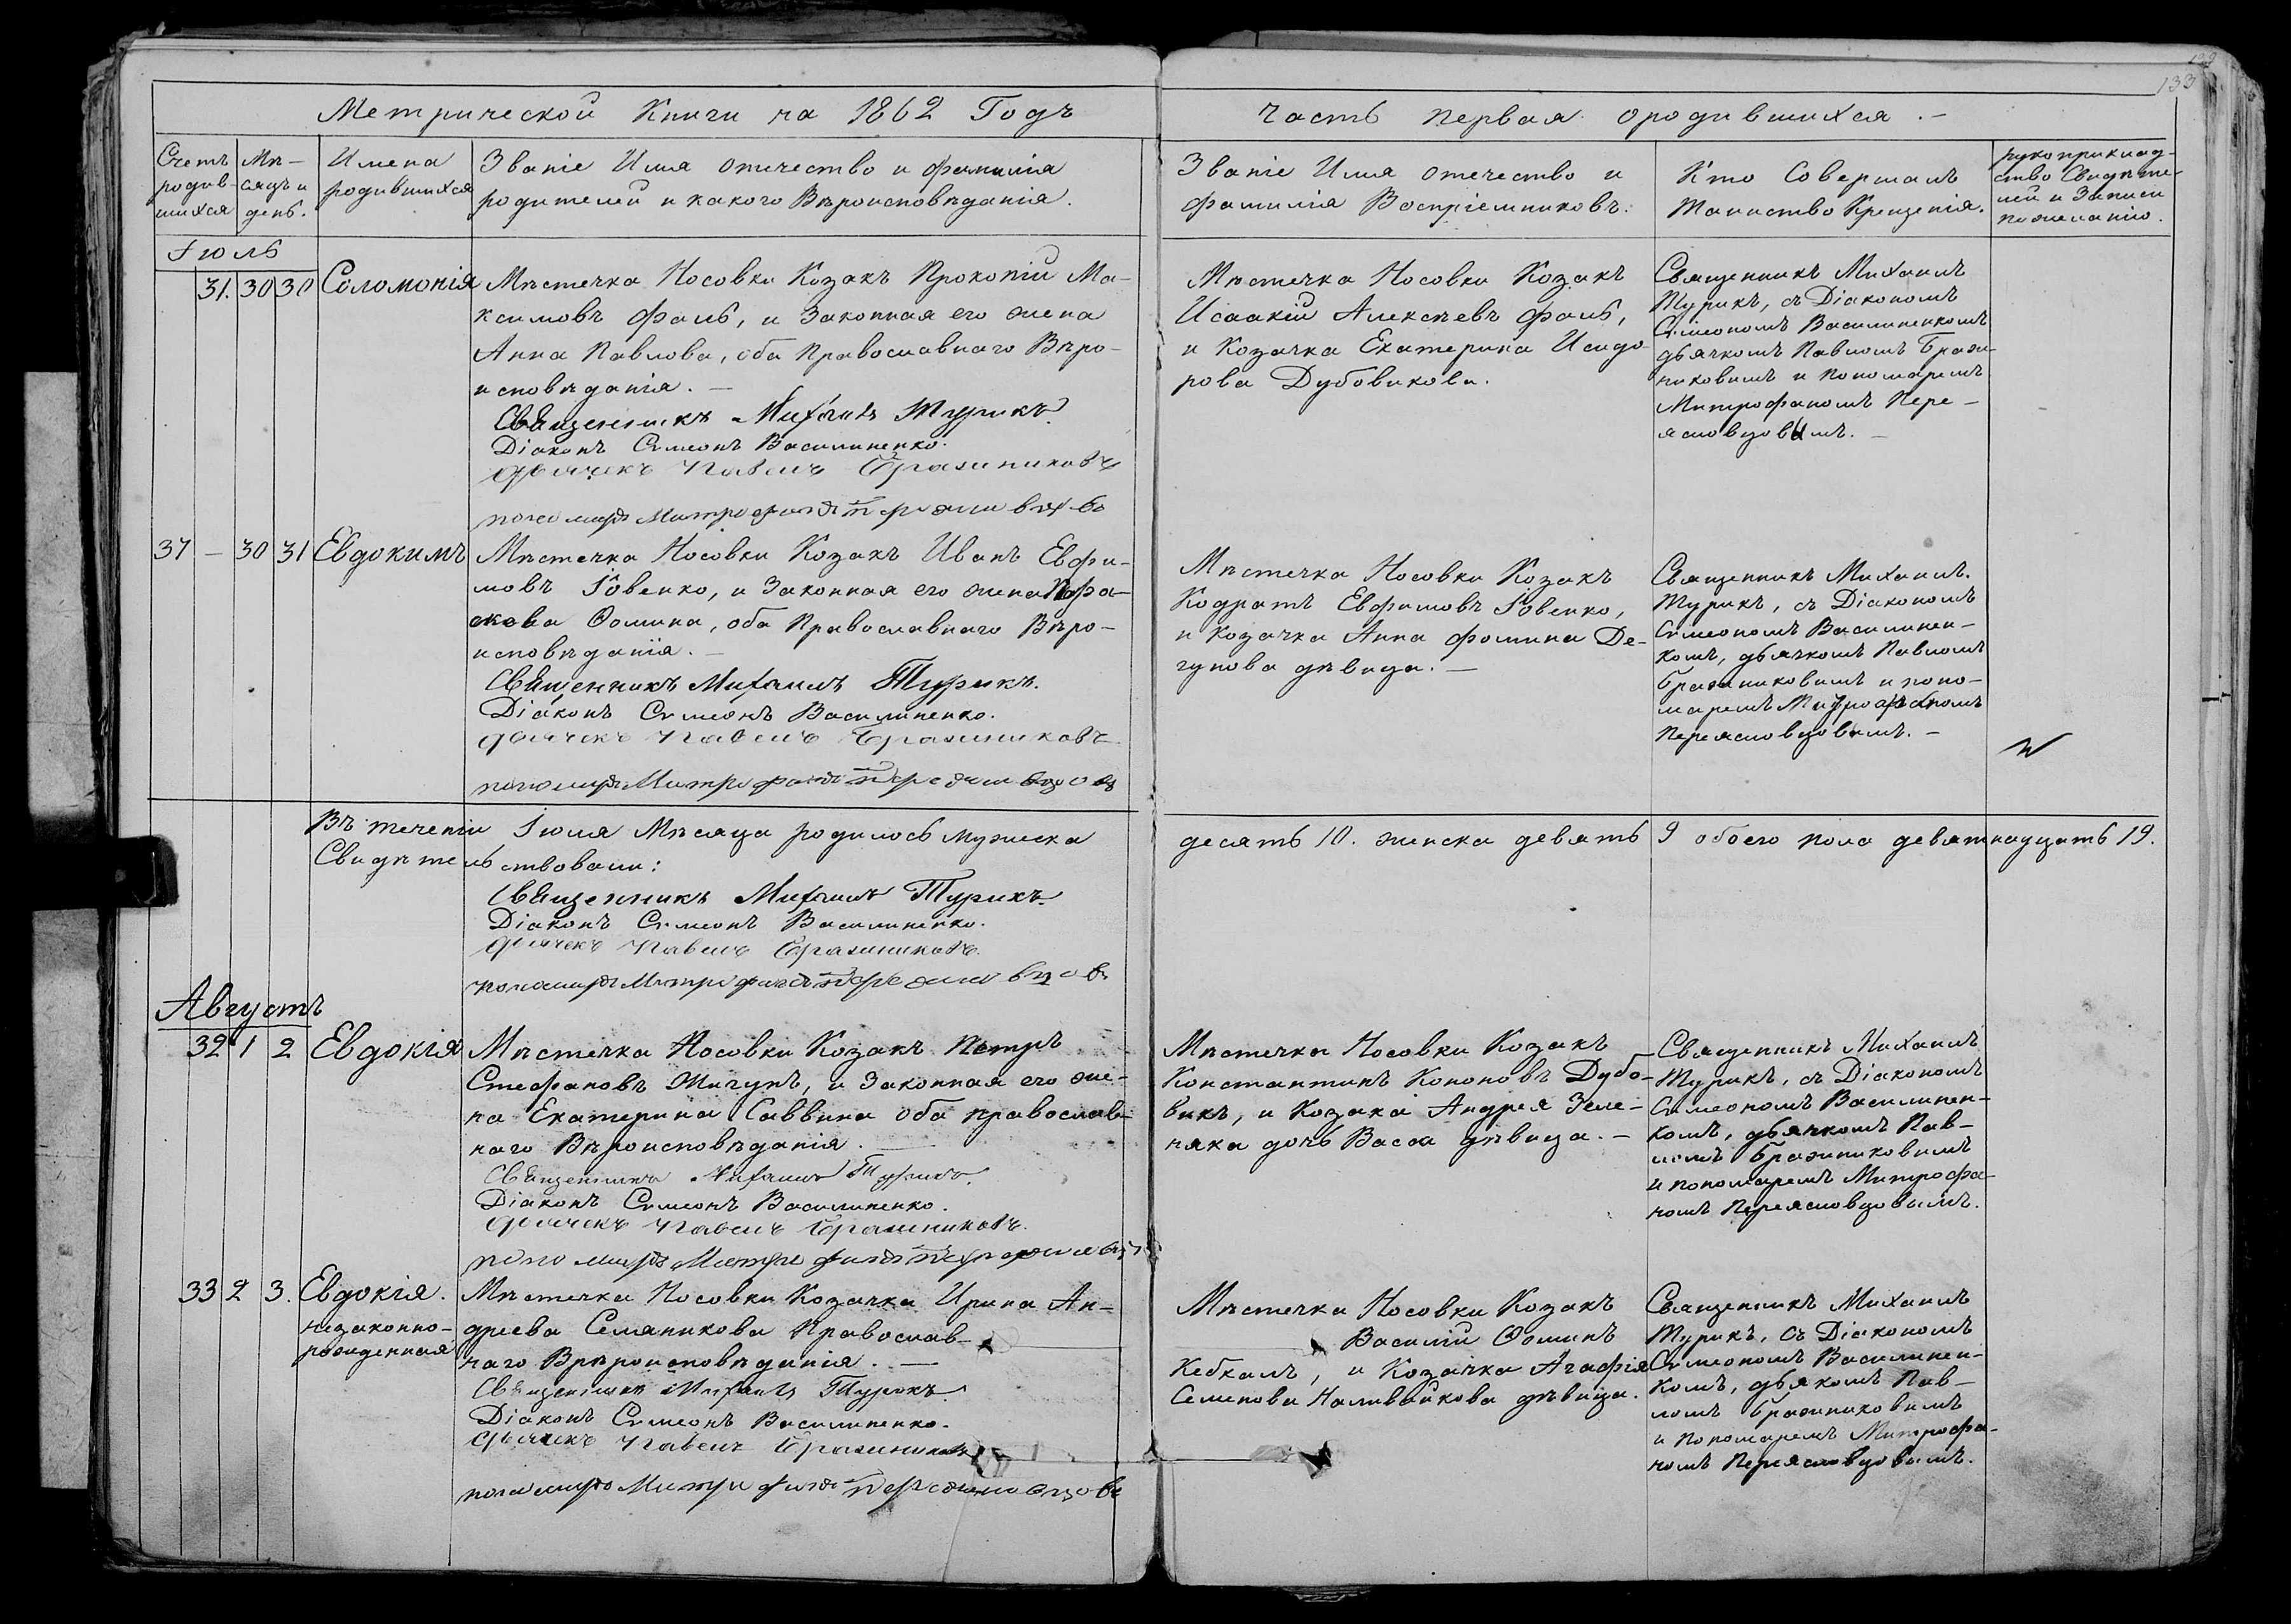 133
Метрической Книги на 1862 Годъ
часть первая о родившихся.
Счетъ родив-шихся
Мѣ-сяцъ и день.
Имена родившихся
Званіе Имя отчество и фамилія
родителей и какого Вѣроисповѣданія.
Званіе Имя отечество и
фамилія Воспріемниковъ.
Кто Совершалъ
Таинство Крещенія.
рукоприклад-
ство Свидѣте-
лей и Записи
по желанію.
Іюль
31. 30 30 Соломонія
Мѣстечка Носовки Козакъ Прокопій Ма-
ксимовъ Фаль, и Законная его жена
Анна Павлова, оба Православнаго Вѣро-
исповѣданія. —
Священникъ Михаилъ Турикъ.
Діаконъ Симеонъ Василиненко.
Дьячекъ Павелъ Бражниковъ
пономарь Митрофанъ
Мѣстечка Носовки Козакъ
Исаакій Алексѣевъ Фаль,
и Козачка Екатерина Исидо-
рова Дубовикова.
Священникъ Михаилъ
Турикъ, съ Діакономъ
Симеономъ Василиненкомъ
дьячкомъ Павломъ Браж-
никовымъ и пономаремъ
Митрофаномъ Пере-
ясловцовымъ. —
37 — 30 31 Евдокимъ
Мѣстечка Носовки Козакъ Иванъ Евфи-
мовъ Іовенко, и Законная его жена Пара-
скева Ѳомина, оба Православнаго Вѣро-
исповѣданія. —
Священникъ Михаилъ Турикъ.
Діаконъ Симеонъ Василиненко.
Дьячекъ Павелъ Бражниковъ
пономарь Митрофанъ Переясловцовъ
Мѣстечка Носовки Козакъ
Кодратъ Евфимовъ Іовенко,
и Козачка Анна Фомина Де-
гунова дѣвица. —
Священникъ Михаилъ
Турикъ, съ Діакономъ
Симеономъ Василинен-
комъ, дьячкомъ Павломъ
Бражниковымъ и поно-
маремъ Митрофаномъ
Переясловцовымъ. —
Въ теченіи Іюля Мѣсяца родилось мужеска
десять 10. женска девять 9 обоего пола девятнадцать 19.
Свидѣтельствовали:
Священникъ Михаилъ Турикъ.
Діаконъ Симеонъ Василиненко.
Дьячекъ Павелъ Бражниковъ.
пономарь Митрофанъ Переясловцовъ
Августъ
32 1 2 Евдокія
Мѣстечка Носовки Козакъ Петръ
Стефановъ Жигунъ, и Законная его же-
на Екатерина Саввина оба православ-
наго Вѣроисповѣданія. —
Священникъ Михаилъ Турикъ.
Діаконъ Симеонъ Василиненко.
Дьячекъ Павелъ Бражниковъ.
пономарь Митрофанъ
Мѣстечка Носовки Козакъ
Константинъ Кононовъ Дубо-
викъ, и Козака Андрея Зеле-
няка дочь Васса дѣвица. —
Священникъ Михаилъ
Турикъ, съ Діакономъ
Симеономъ Василинен-
комъ, дьячкомъ Пав-
ломъ Бражниковымъ
и пономаремъ Митрофа-
номъ Переясловцовымъ.
33 2 3. Евдокія.
незаконно-
рожденная
Мѣстечка Носовки Козачка Ирина Ан-
дреева Семяникова Православ-
наго Вѣроисповѣданія. —
Священникъ Михаилъ Турикъ.
Діаконъ Симеонъ Василиненко.
Дьячекъ Павелъ Бражниковъ
пономарь Митрофанъ Переясловцовъ
Мѣстечка Носовки Козакъ
Василій Ѳоминъ
Кебкалъ, и Козачка Агафія
Семенова Наливайкова дѣвица.
Священникъ Михаилъ
Турикъ, Съ Діакономъ
Симеономъ Василинен-
комъ, дьякомъ Пав-
ломъ Бражниковымъ
и пономаремъ Митрофа-
номъ Переясловцовымъ.